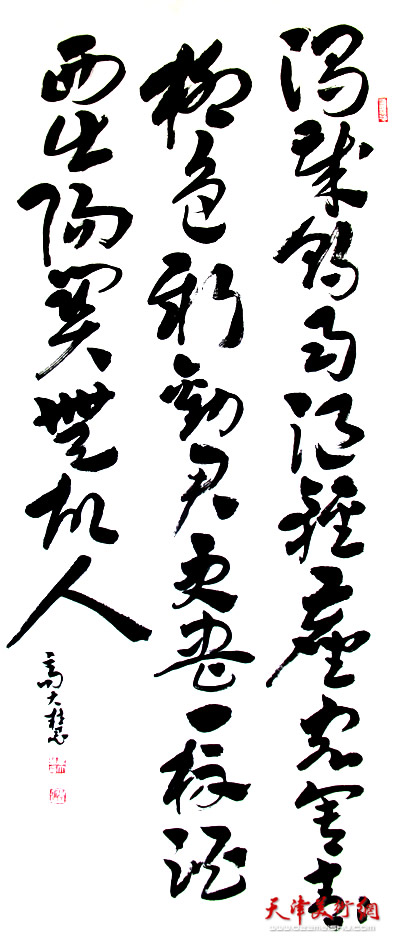 渭城朝雨浥輕塵客舍青々
柳色新勸君更盡一杯酒
西出陽關無故人
高大
天津美术網